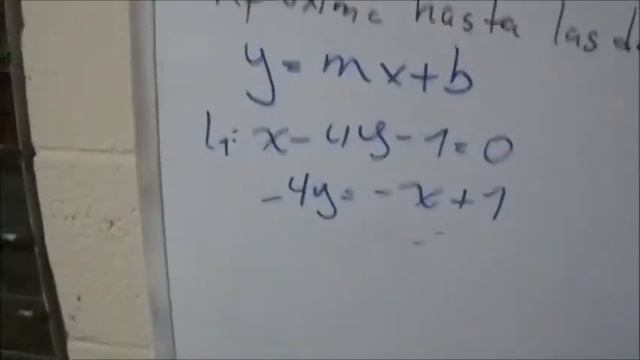 Aproxime hasta las
y = mx + b
L₁: x - 4y - 1 = 0
-4y = -x + 1